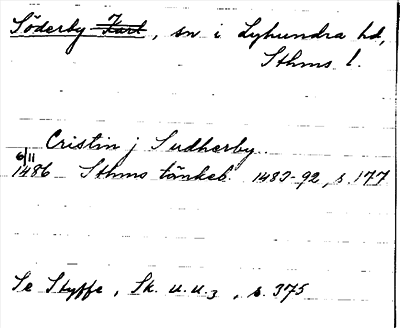 Söderby Karl, sn i Lyhundra hd,
Sthms l.
Cristin j Sudherby.
6/11
1486 Sthms tänkeb. 1483-92, s. 177
Se Styffe, Sk. u. u.3, s. 375